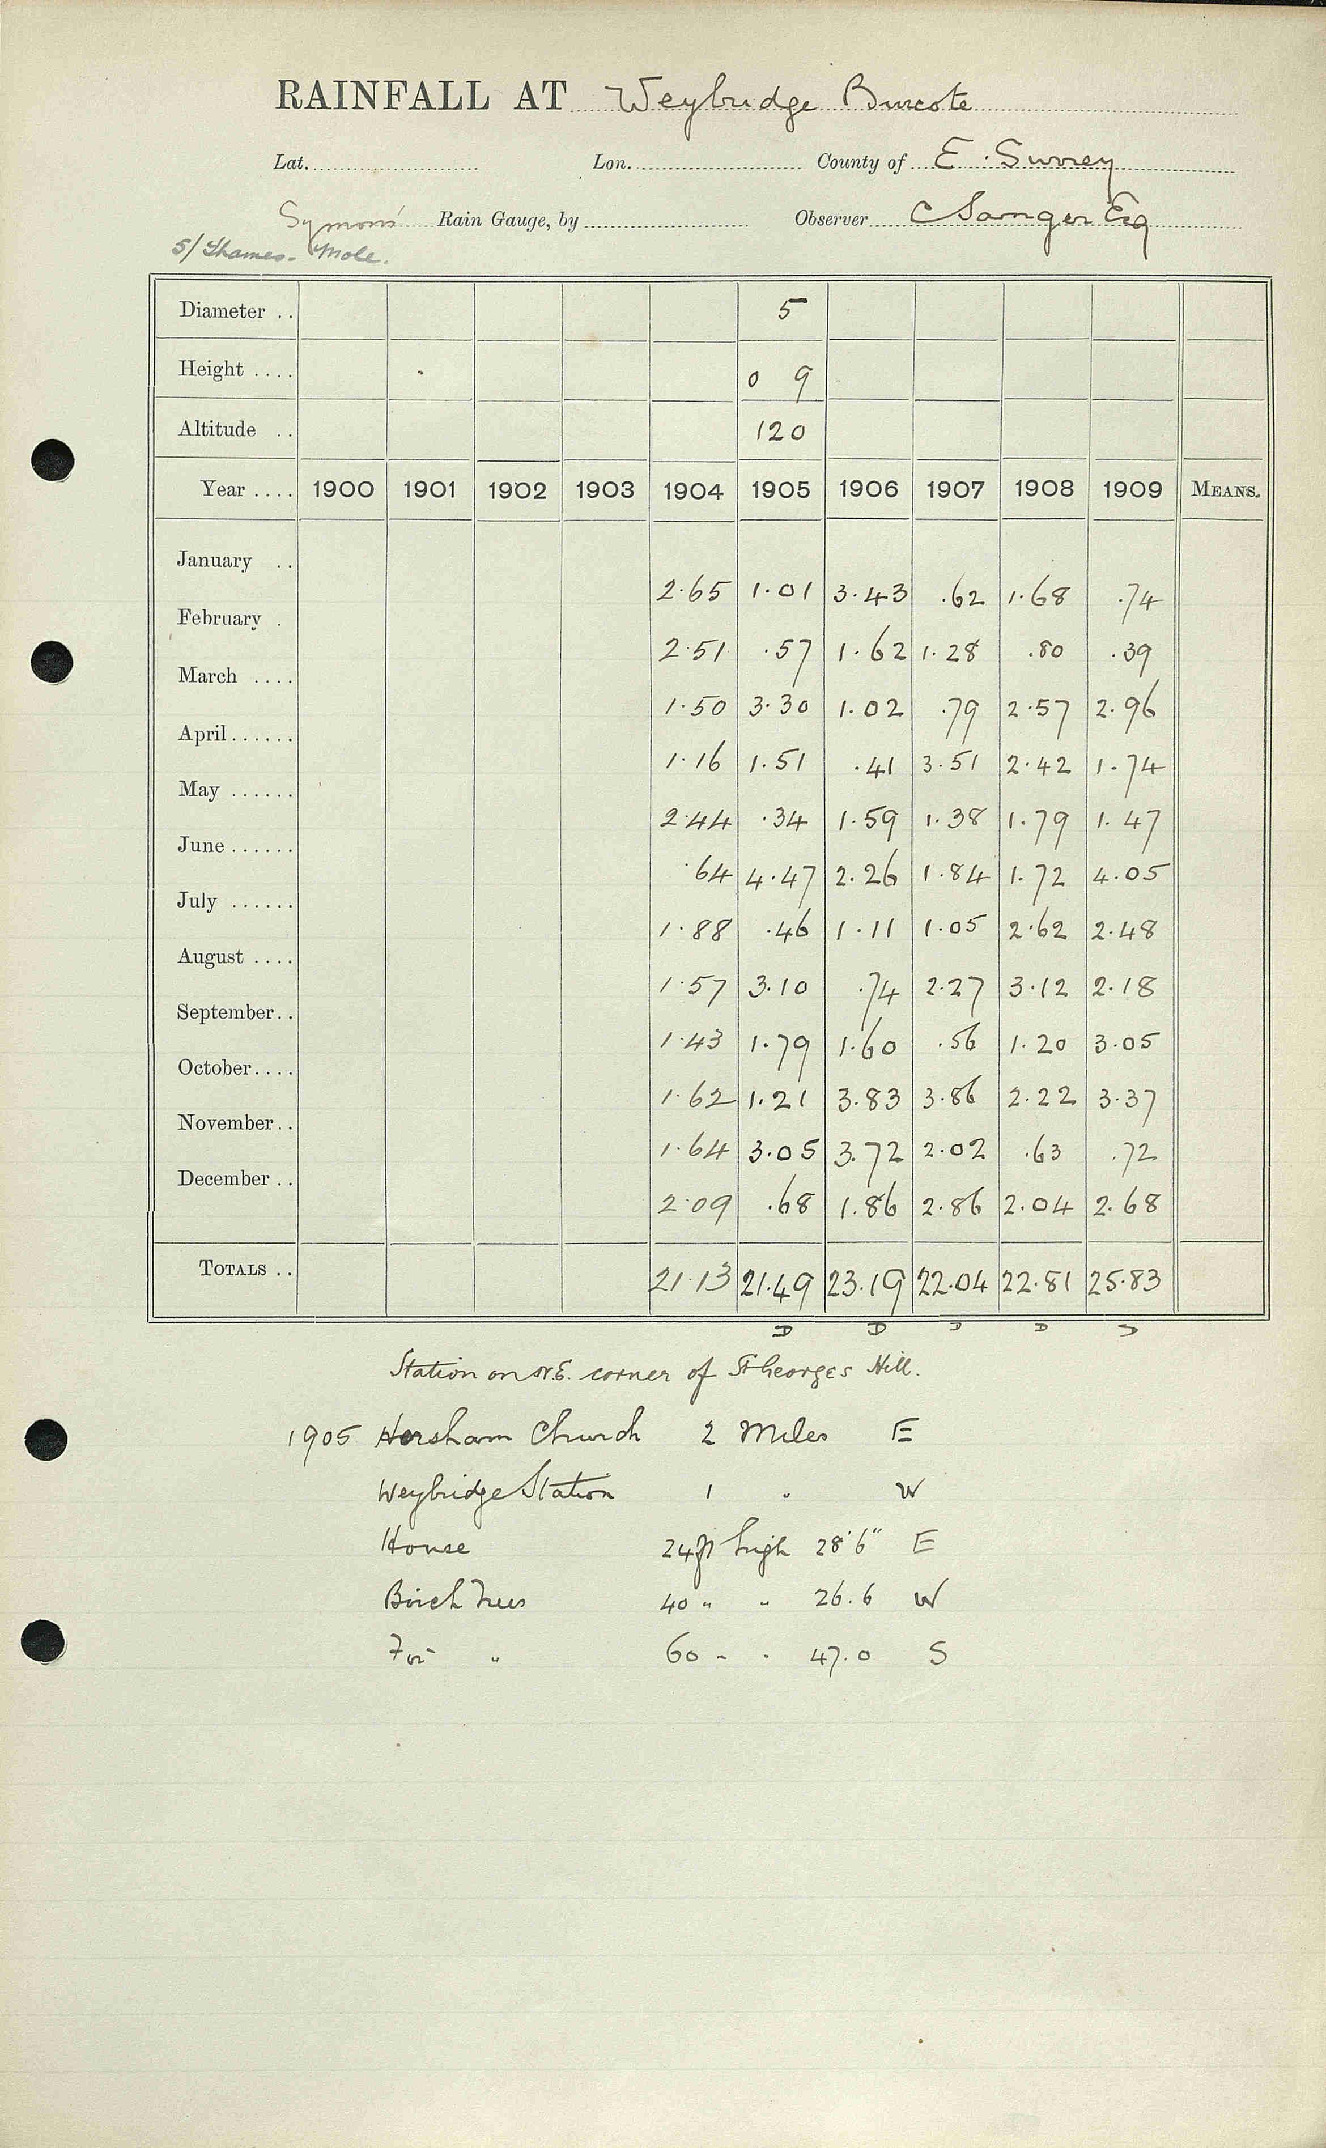 RAINFALL AT Weybridge Burcote
Lat. Lon. County of E. Surrey
Symons' Rain Gauge, by Observer C Sanger Esq
S/ Thames - Mole.
Diameter .. 5
Height .... 0 9
Altitude .. 120
Year .... 1900 1901 1902 1903 1904 1905 1906 1907 1908 1909 MEANS.
January .. 2.65 1.01 3.43 .62 1.68 .74
February . 2.51 .57 1.62 1.28 .80 .39
March .... 1.50 3.30 1.02 .79 2.57 2.96
April...... 1.16 1.51 .41 3.51 2.42 1.74
May ...... 2.44 .34 1.59 1.38 1.79 1.47
June...... .64 4.47 2.26 1.84 1.72 4.05
July ...... 1.88 .46 1.11 1.05 2.62 2.48
August .... 1.57 3.10 .74 2.27 3.12 2.18
September.. 1.43 1.79 1.60 .56 1.20 3.05
October.... 1.62 1.21 3.83 3.86 2.22 3.37
November.. 1.64 3.05 3.72 2.02 .63 .72
December .. 2.09 .68 1.86 2.86 2.04 2.68
TOTALS .. 21.13 21.49 23.19 22.04 22.81 25.83
D D D D D
Station on N.E. corner of St Georges Hill.
1905 Hersham Church 2 Miles E
Weybridge Station 1 " W
House 24 ft high 28'6" E
Birch Trees 40 " " 26.6 W
Fir " 60 " " 47.0 S